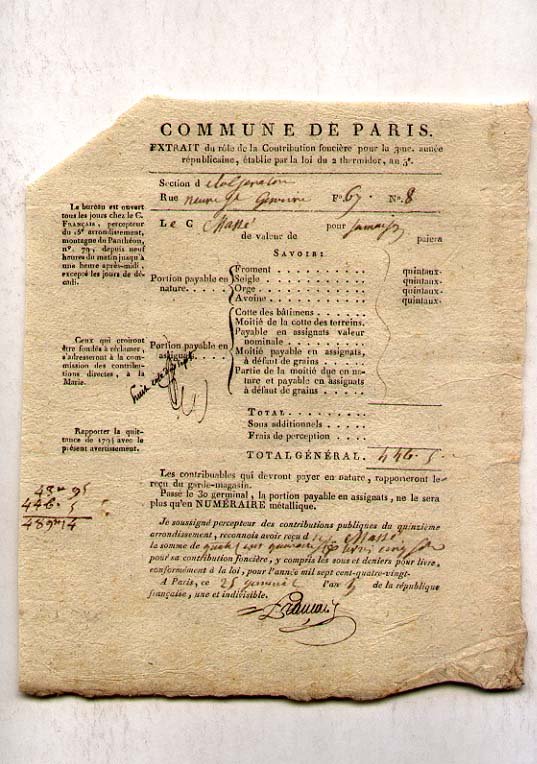 COMMUNE DE PARIS.
EXTRAIT du rôle de la Contribution foncière pour la 3me. année
républicaine, établie par la loi du 2 thermidor, an 3e.
Section d
Rue neuve Ste Genevieve Fo. 67. No. 8
Le C Massé pour sa maison
de valeur de paiera
SAVOIR:
Portion payable en nature. . . . .
Froment . . . . . . . . . . . quintaux.
Seigle . . . . . . . . . . . quintaux.
Orge . . . . . . . . . . . quintaux.
Avoine . . . . . . . . . . . quintaux.
Portion payable en assignats.
Cotte des bâtimens. . . . . . .
Moitié de la cotte des terreins.
Payable en assignats valeur
nominale . . . . . . . . .
Moitié payable en assignats,
à défaut de grains . . . . .
Partie de la moitié due en na-
ture et payable en assignats
à défaut de grains . . . . .
TOTAL . . . . . . . .
Sous additionnels . . . .
Frais de perception . . . .
TOTAL GÉNÉRAL. 446. 5
Les contribuables qui devront payer en nature, rapporteront le
reçu du garde-magasin.
Passé le 30 germinal, la portion payable en assignats, ne le sera
plus qu'en NUMÉRAIRE métallique.
Je soussigné percepteur des contributions publiques du quinzième
arrondissement, reconnois avoir reçu d Massé
la somme de quatre cent quarante six livres cinq sols
pour sa contribution foncière, y compris les sous et deniers pour livre,
conformément à la loi, pour l'année mil sept cent-quatre-vingt-
A Paris, ce 25 germinal l'an de la république
française, une et indivisible.
Le bureau est ouvert
tous les jours chez le C.
FRANÇAIS, percepteur
du 15e arrondissement,
montagne du Panthéon,
no. 79, depuis neuf
heures du matin jusqu'à
une heure après-midi,
excepté les jours de dé-
cadi.
Ceux qui croiront
être fondés à réclamer,
s'adresseront à la com-
mission des contribu-
tions directes, à la
Mairie.
Rapporter la quit-
tance de 1793 avec le
présent avertissement.
43 9
446. 5
489 14